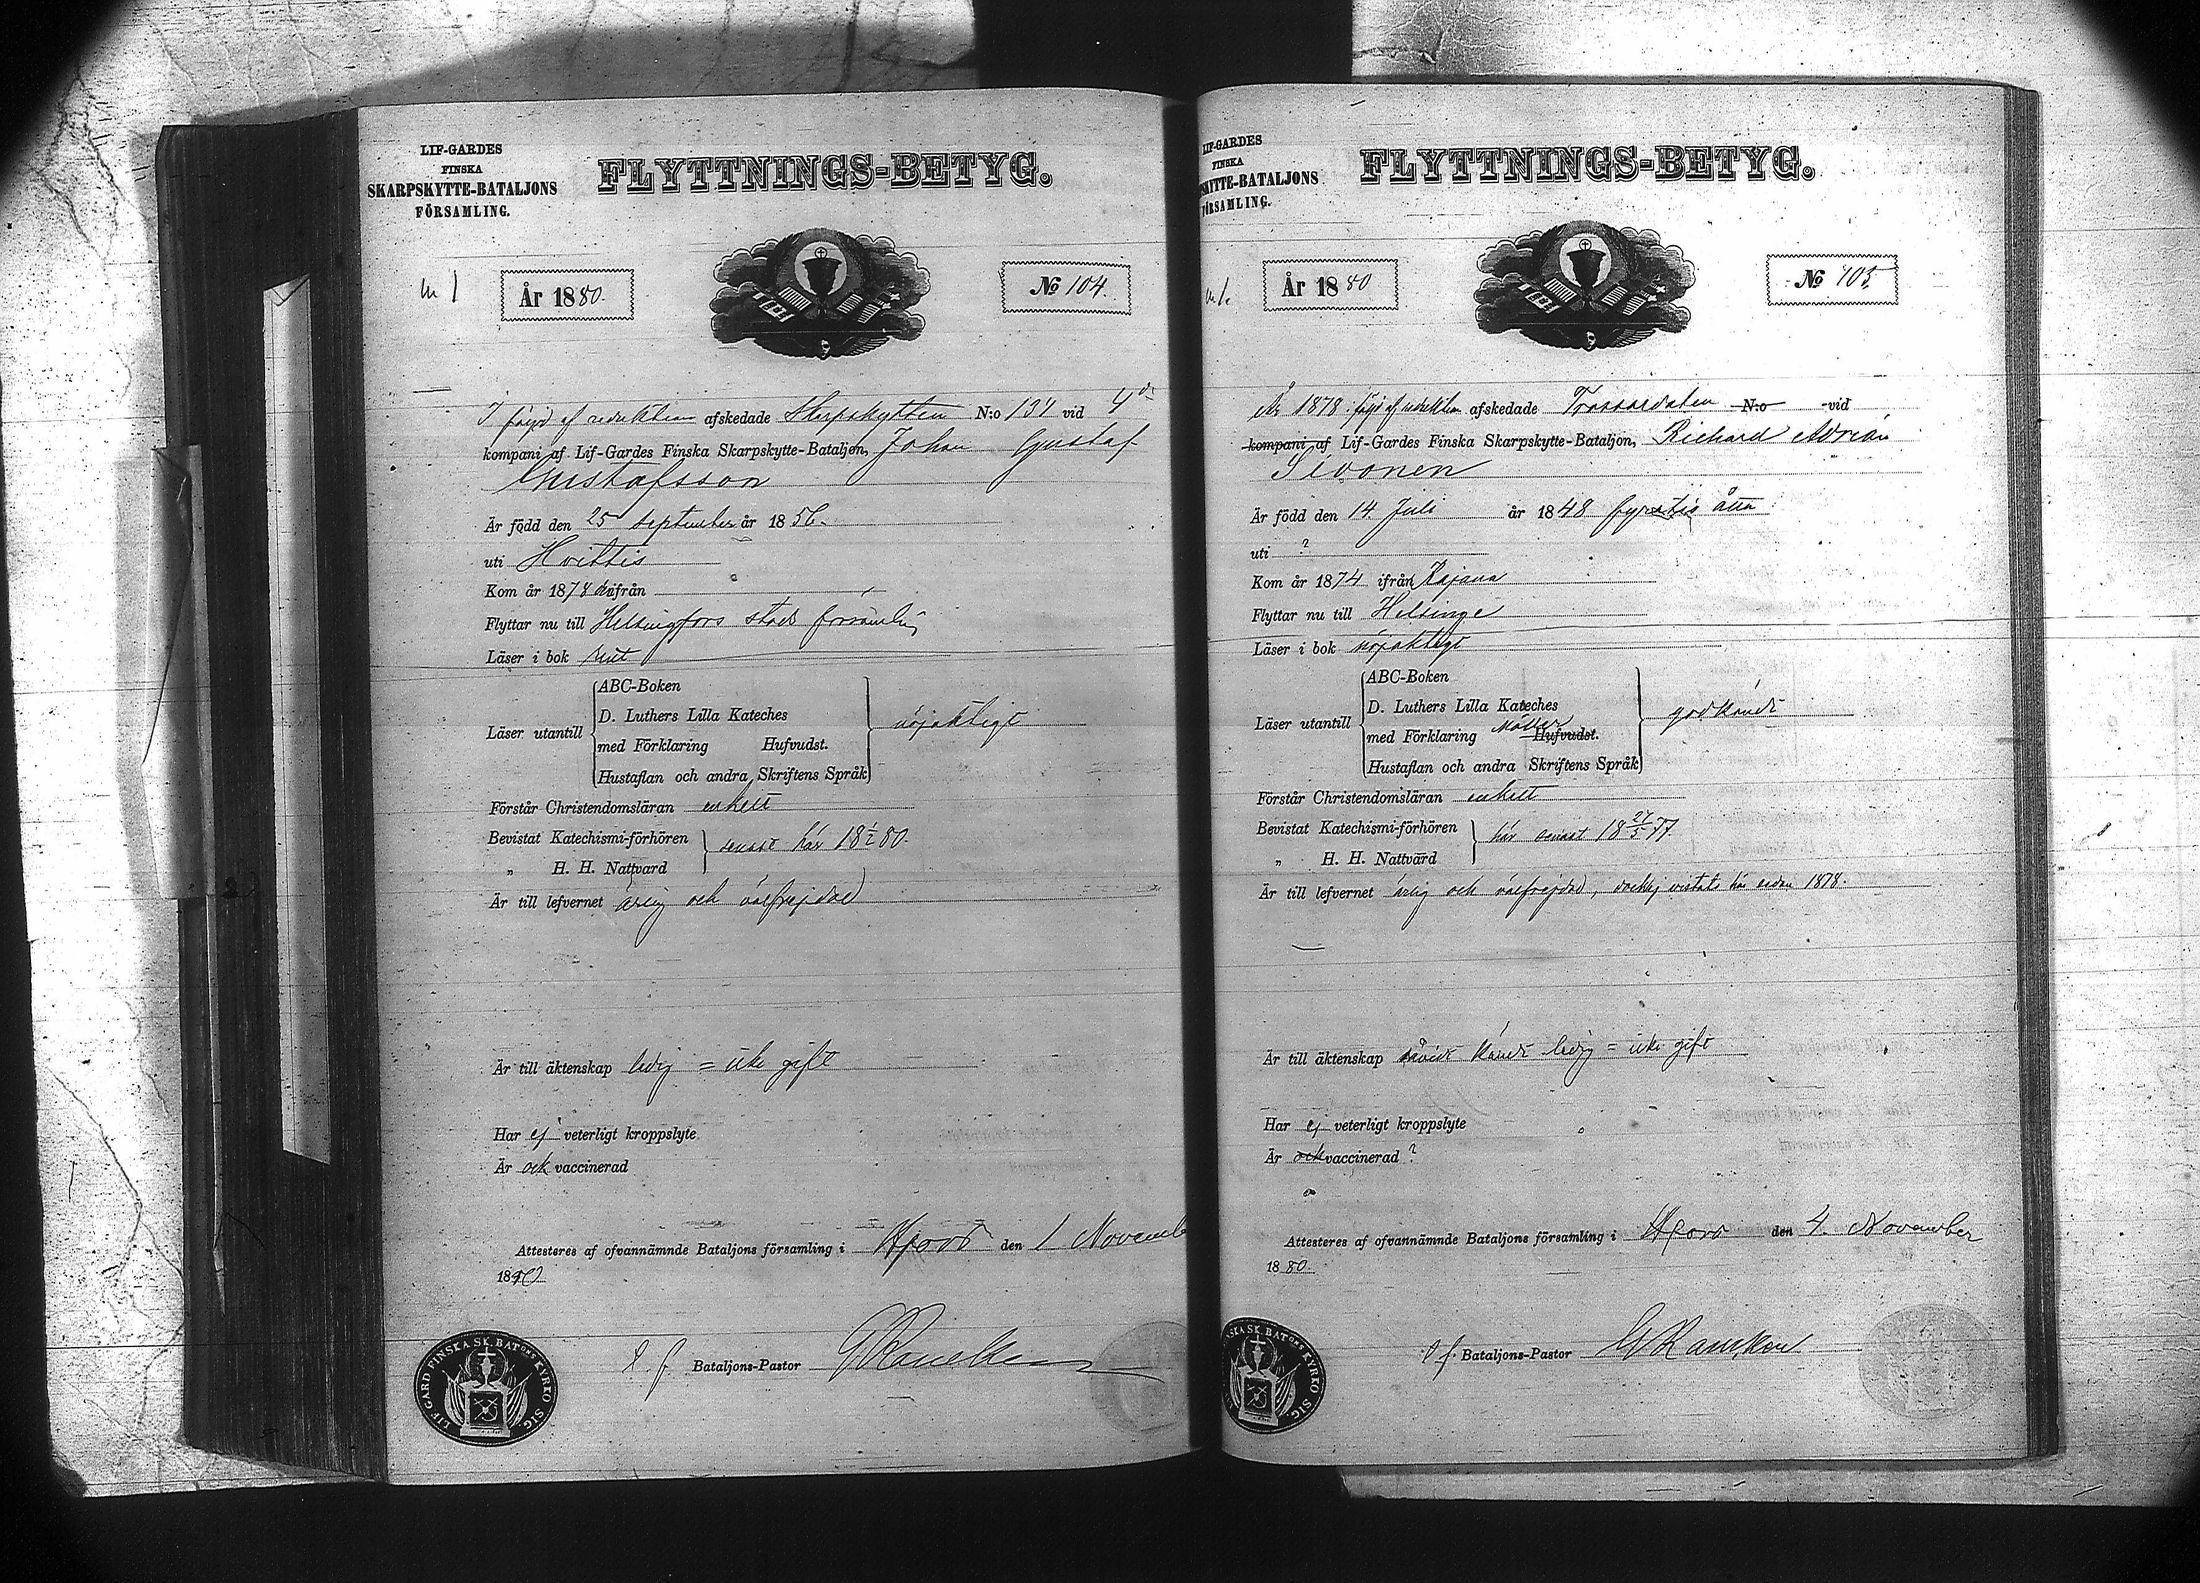 LIF-GARDES
FINSKA
SKARPSKYTTE-BATALJONS
FÖRSAMLING.
FLYTTNINGS-BETYG.
m 1
År 1880.
No 104.
I följd af reduktion afskedade Skarpskytten N:o 131 vid 4de
kompani af Lif-Gardes Finska Skarpskytte-Bataljon, Johan Gustaf
Gustafsson
Är född den 25 September år 1856.
uti Hvittis
Kom år 1878 ifrån
Flyttar nu till Helsingfors stads församling
Läser i bok rent
Läser utantill
ABC-Boken
D. Luthers Lilla Kateches
med Förklaring Hufvudst.
Hustaflan och andra Skriftens Språk
nöjaktigt
Förstår Christendomsläran enkelt
Bevistat Katechismi-förhören
„ H. H. Nattvard
senast här 18 1/2 80.
Är till lefvernet ärlig och välfrejdad
Är till äktenskap ledig = icke gift
Har ej veterligt kroppslyte
Är och vaccinerad
Attesteres af ofvannämnde Bataljons församling i H:fors den 1 Novemb
1880
Bataljons-Pastor
LIF. GARD. FINSKA SK. BATONS KYRKO SIG.
LIF-GARDES
FINSKA
SKYTTE-BATALJONS
FÖRSAMLING.
FLYTTNINGS-BETYG.
m 1.
År 1880
No 105
År 1878 i följd af reduktion afskedade Trossoldaten N:o vid
kompani af Lif-Gardes Finska Skarpskytte-Bataljon, Richard Adrian
Sivonen
Är född den 14 Juli år 1848 fyratio åtta
uti ?
Kom år 1874 ifrån Kajana
Flyttar nu till Helsinge
Läser i bok nöjaktigt
Läser utantill
ABC-Boken
D. Luthers Lilla Kateches
med Förklaring Hufvudst.
Hustaflan och andra Skriftens Språk
godkändt
Förstår Christendomsläran enkelt
Bevistat Katechismi-förhören
„ H. H. Nattvard
här senast 18 27/5 77.
Är till lefvernet ärlig och välfrejdad, dock ej vistats här sedan 1878.
Är till äktenskap såvidt kändt ledig = icke gift
Har ej veterligt kroppslyte
Är och vaccinerad ?
Attesteres af ofvannämnde Bataljons församling i H:fors den 4. November
1880.
Bataljons-Pastor
SKA SK. BATONS KYRKO SIG.